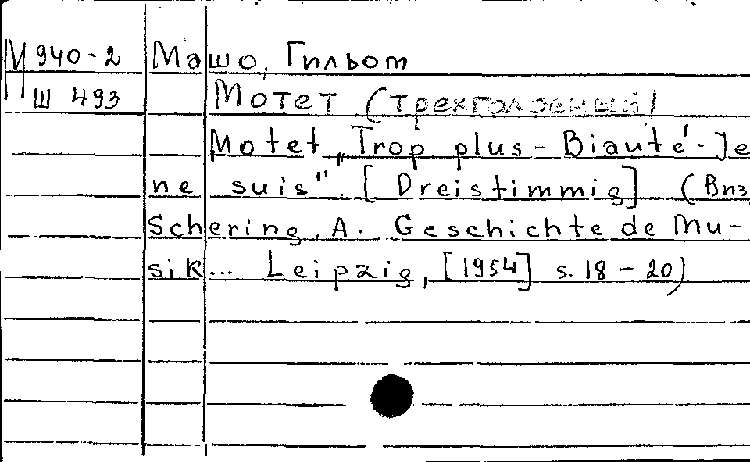 М 940-2 Машо, Гильом
Ш 493 Мотет (трехголосный)
Motet „Trop plus-Biauté-Je
ne suis". [Dreistimmig] (Вnз
Schering, A. Geschichte de Mu-
sik... Leipzig, [1954] s. 18-20)